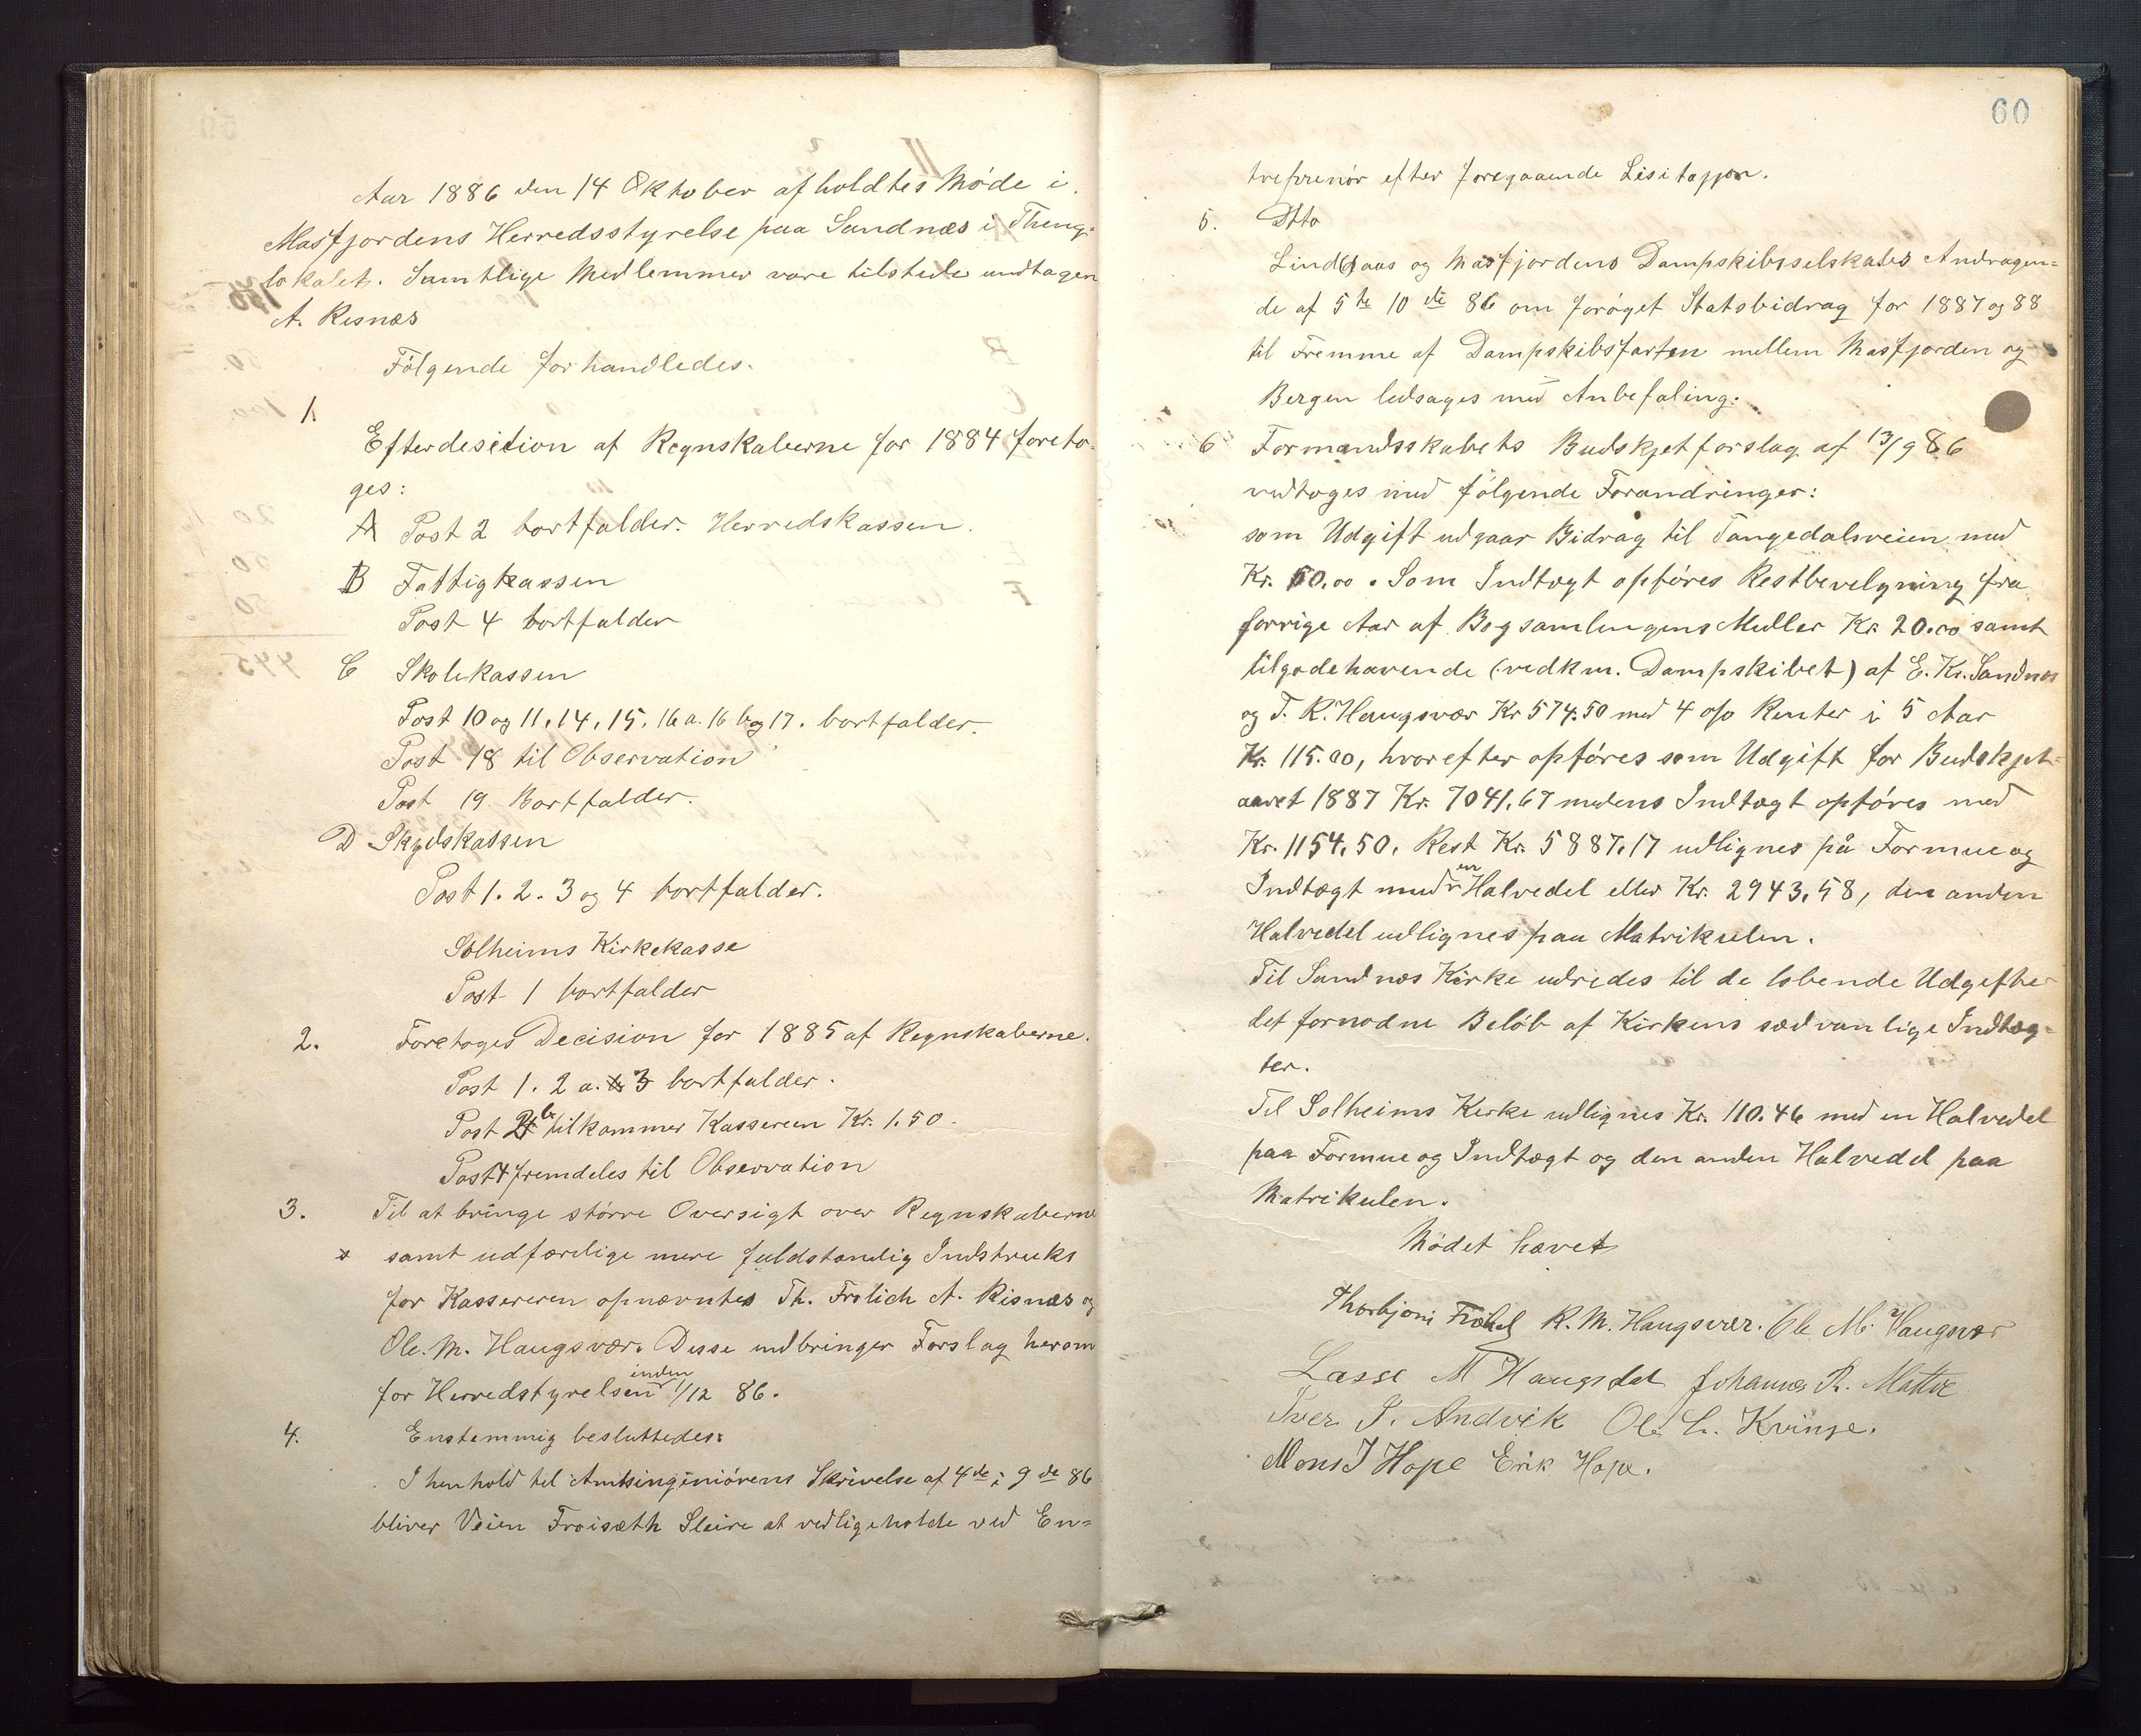 Aar 1886 den 14 Oktober afholdtes Møde i
Masfjordens Herredsstyrelse paa Sandnæs i Thing-
lokalet. Samtlige Medlemmer vare tilstede undtagen
A. Risnæs
Følgende forhandledes.
1.
Efterdesition af Regnskaberne for 1884 foreto-
ges:
A Post 2 bortfalder. Herredskassen.
B Fattigkassen
Post 4 bortfalder
C Skolekassen
Post 10 og 11, 14, 15, 16 a. 16 b og 17. bortfalder.
Post 18 til Observation
Post 19 Bortfalder.
D Skydskassen
Post 1. 2. 3 og 4 bortfalder.
Solheims Kirkekasse
Post 1 bortfalder
2. Foretoges Decision for 1885 af Regnskaberne.
Post 1. 2 a. 3 bortfalder.
Post 2 b tilkommer Kassereren Kr. 1.50.
Post 4 fremdeles til Observation
3. Til at bringe større Oversigt over Regnskaberne
samt udfærdige mere fuldstændig Indstruks
for Kassereren opnævntes Th. Frølich A. Risnæs og
Ole. M. Haugsvær. Disse indbringer Forslag herom
for Herredstyrelsen inden 1/12 86.
4. Enstemmig besluttedes:
I henhold til Amtsingeniørens Skrivelse af 4de i 9de 86
bliver Veien Froisæth Sleire at vedligeholde ved En-
60
treprenør efter foregaaende Lisitasjon.
5. Dtto
Lindaas og Masfjordens Dampskibsselskabs Andragen-
de af 5te 10de 86 om forøget Statsbidrag for 1887 og 88
til Fremme af Dampskibsfarten mellem Masfjorden og
Bergen ledsages med Anbefaling.
6 Formandsskabets Budskjetforslag af 13/9 86
vedtoges med følgende Forandringer:
som Udgift udgaar Bidrag til Tangedalsveien med
Kr. 50.00. Som Indtægt opføres Restbevelgning fra
forrige Aar af Bogsamlingens Midler Kr. 20.00 samt
tilgodehavende (vedkm. Dampskibet) af E. Kr. Sandnæs
og T. R. Haugsvær Kr 574.50 med 4 o/o Renter i 5 Aar
Kr. 115.00, hvorefter opføres som Udgift for Budskjet-
aaret 1887 Kr. 7041.67 medens Indtægt opføres med
Kr. 1154.50. Rest Kr. 5887.17 udlignes på Formue og
Indtægt med en Halvedel eller Kr. 2943.58, den anden
Halvedel udlignes paa Matrikulen.
Til Sandnæs Kirke udredes til de løbende Udgifter
det fornødne Beløb af Kirkens sædvanlige Indtæg-
ter.
Til Solheims Kirke udlignes Kr. 110.46 med en Halvedel
paa Formue og Indtægt og den anden Halvedel paa
Matrikulen.
Mødet hævet
Thorbjørn Frølich R. M. Haugsvær. Ole M. Haugsvær
Lasse M Haugsdal Johannes R. Matre
Iver I. Andvik Ole L. Kvinge.
Mons J Hope Erik Hope.